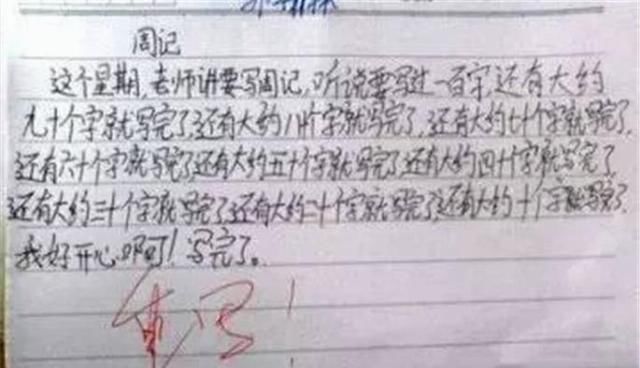 周记
这个星期,老师讲要写周记,听说要写过一百字还有大约
九十个字就写完了,还有大约八十个字就写完了,还有大约七十个字就写完了,
还有六十个字就写完了还有大约五十个字就写完了还有大约四十个字就写完了
还有大约三十个字就写完了还有大约二十个字就写完了还有大约十个字就写完了,
我好开心啊!写完了。
重写!